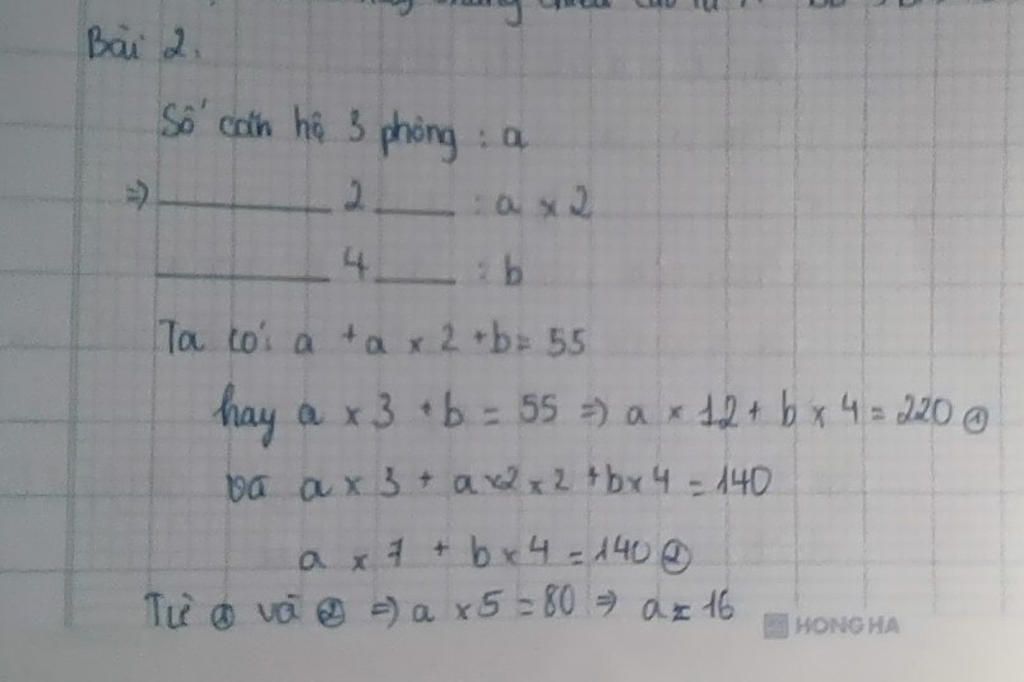 Bài 2.
Số căn hộ 3 phòng : a
⇒ ______ 2 ___ : a × 2
______ 4 ___ : b
Ta có: a + a × 2 + b = 55
hay a × 3 + b = 55 ⇒ a × 12 + b × 4 = 220 ①
và a × 3 + a × 2 × 2 + b × 4 = 140
a × 7 + b × 4 = 140 ②
Từ ① và ② ⇒ a × 5 = 80 ⇒ a = 16
HONG HA